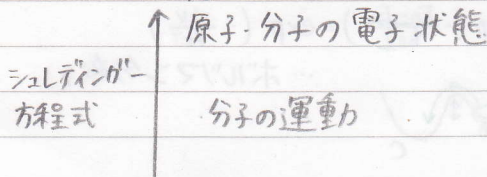 原子・分子の電子状態
シュレディンガー
方程式
分子の運動